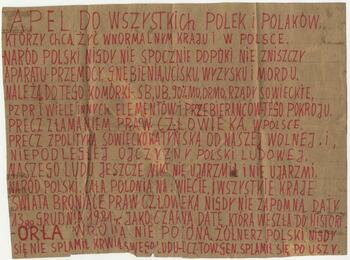 APEL DO WSZYSTKICH POLEK i POLAKÓW,
KTÓRZY CHCĄ ŻYĆ W NORMALNYM KRAJU i W POLSCE.
NARÓD POLSKI NIGDY NIE SPOCZNIE DOPÓKI NIE ZNISZCZY
APARATU PRZEMOCY, GNĘBIENIA, UCISKU, WYZYSKU i MORDU.
NALEŻĄ DO TEGO KOMÓRKI: SB, UB, ZOMO, ORMO, RZĄDY SOWIECKIE,
PZPR i WIELE INNYCH ELEMENTÓW i PRZEBIERAŃCÓW TEGO POKROJU.
PRECZ Z ŁAMANIEM PRAW CZŁOWIEKA W POLSCE.
PRECZ Z POLITYKĄ SOWIECKO KATYŃSKĄ OD NASZEJ WOLNEJ. i,
NIEPODLEGŁEJ OJCZYZNY POLSKI LUDOWEJ.
NASZEGO LUDU JESZCZE NIKT NIE UJARZMIŁ i NIE UJARZMI.
NARÓD POLSKI, CAŁA POLONIA NA ŚWIECIE, i WSZYSTKIE KRAJE
ŚWIATA BRONIĄCE PRAW CZŁOWIEKA NIGDY NIE ZAPOMNĄ DATY
13go GRUDNIA 1981r. JAKO CZARNA DATĘ, KTÓRA WESZŁA DO HISTORI
ORŁA WRONA NIE POKONA ŻOŁNIERZ POLSKI NIGDY
SIĘ NIE SPLAMIŁ KRWIĄ SWEGO LUDU-LECZ TOW. GEN. SPLAMIŁ SIĘ PO USZY.